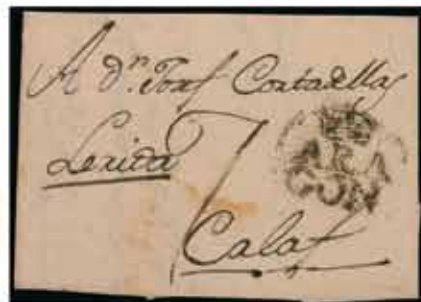 A Dn. Josef Cortadellas
Lerida
7
Calaf